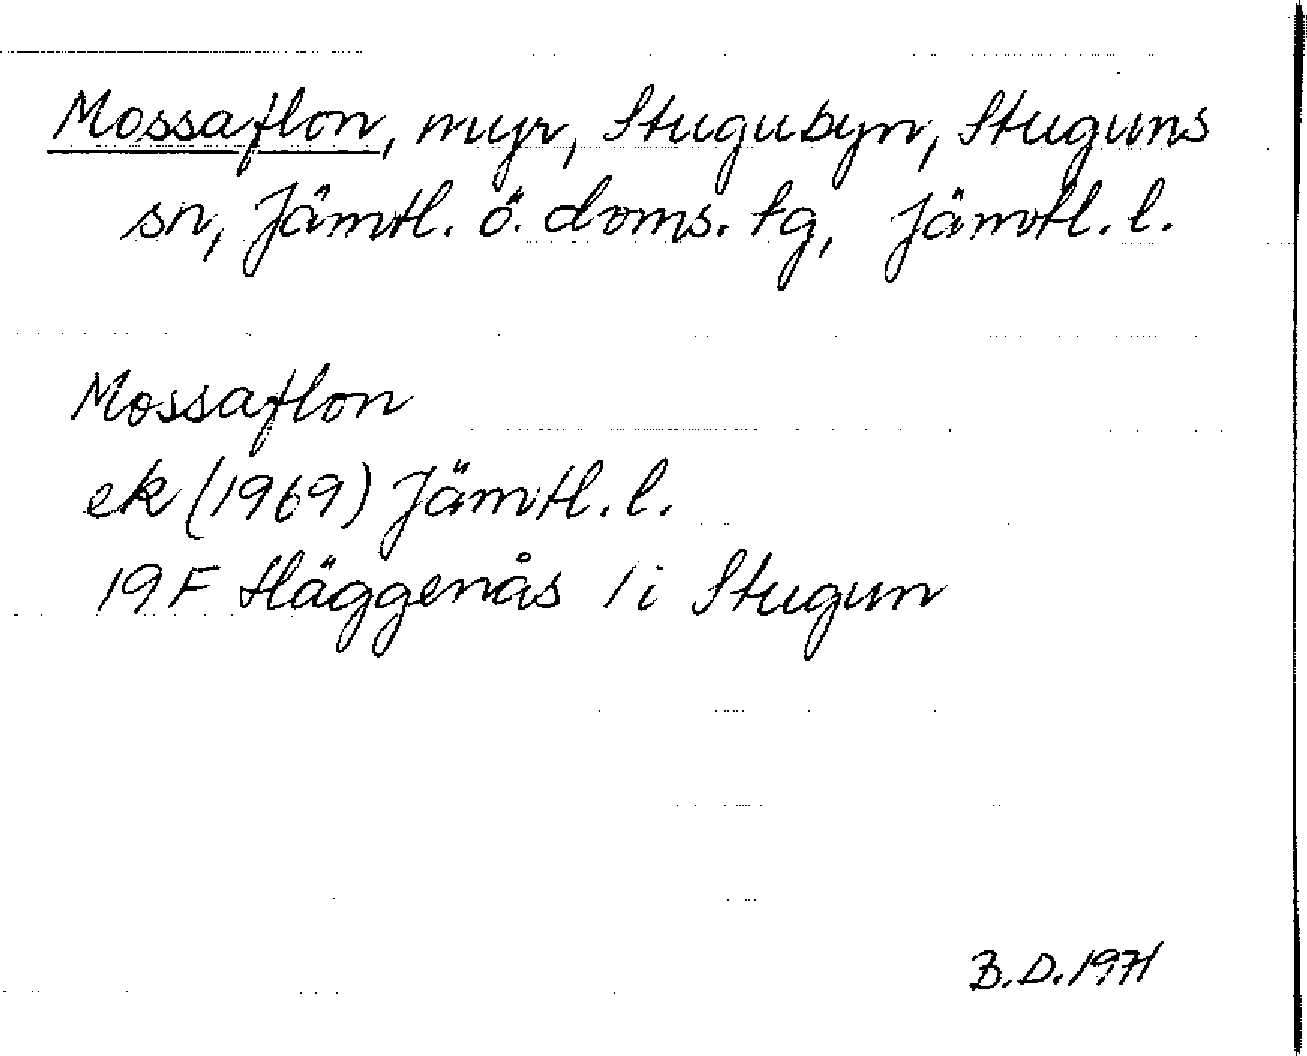 Mossaflon, myr, Stugubyn, Stuguns
sn, Jämtl. ö. doms. tg, Jämtl. l.
Mossaflon
ek (1969) Jämtl. l.
19 F Häggenås 1 i Stugun
B.D. 1971